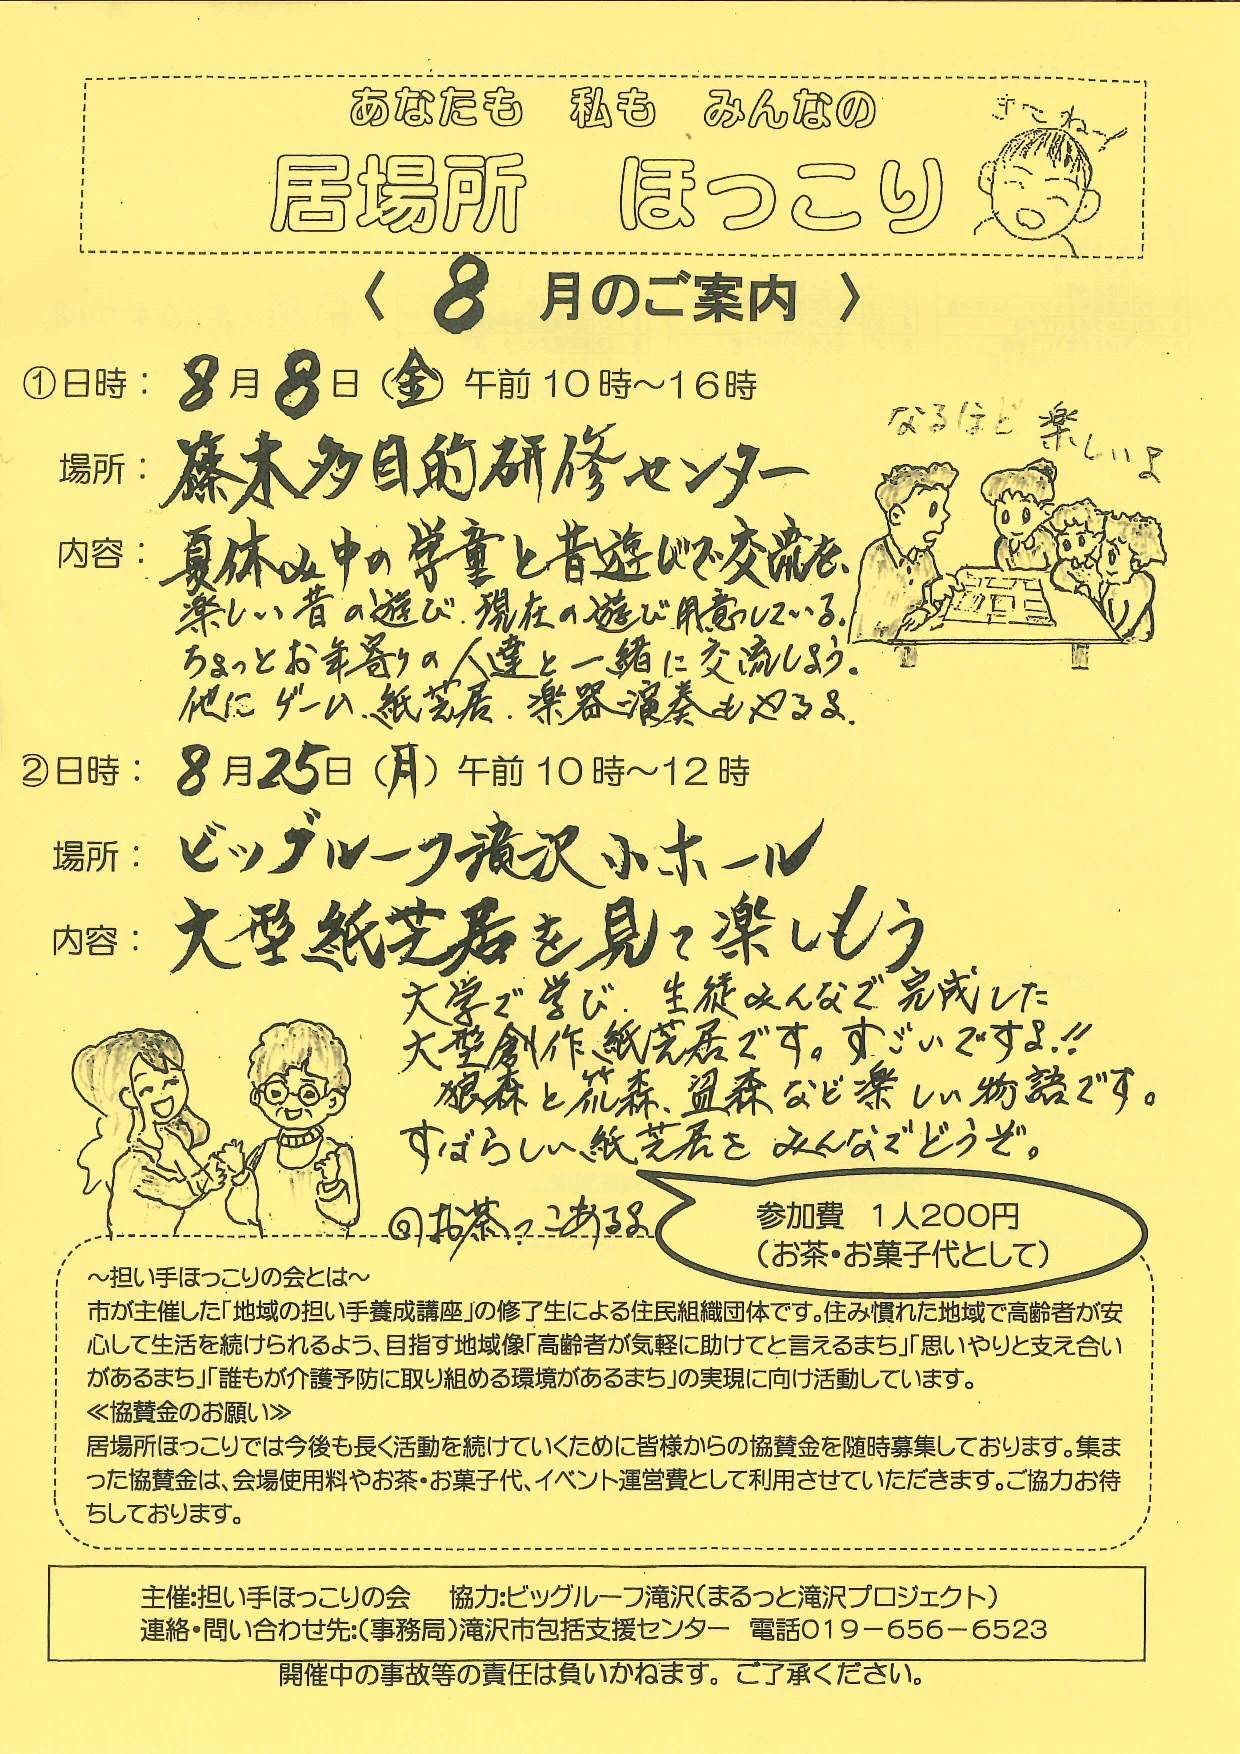 あなたも 私も みんなの
きてねー
居場所 ほっこり
〈 8 月のご案内 〉
①日時: 8月8日（金）午前10時～16時
なるほど 楽しいよ
場所: 篠木多目的研修センター
内容: 夏休み中の学童と昔遊びで交流を、
楽しい昔の遊び、現在の遊び用意している。
ちょっとお年寄りの人達と一緒に交流しよう。
他にゲーム、紙芝居、楽器演奏もやるよ。
②日時: 8月25日（月）午前10時～12時
場所: ビッグルーフ滝沢小ホール
内容: 大型紙芝居を見て楽しもう
大学で学び、生徒みんなで完成した
大型創作紙芝居です。すごいですよ!!
狼森と笊森、盗森など楽しい物語です。
すばらしい紙芝居をみんなでどうぞ。
お茶っこあるよ
参加費 1人200円
（お茶・お菓子代として）
～担い手ほっこりの会とは～
市が主催した「地域の担い手養成講座」の修了生による住民組織団体です。住み慣れた地域で高齢者が安
心して生活を続けられるよう、目指す地域像「高齢者が気軽に助けてと言えるまち」「思いやりと支え合い
があるまち」「誰もが介護予防に取り組める環境があるまち」の実現に向け活動しています。
≪協賛金のお願い≫
居場所ほっこりでは今後も長く活動を続けていくために皆様からの協賛金を随時募集しております。集ま
った協賛金は、会場使用料やお茶・お菓子代、イベント運営費として利用させていただきます。ご協力お待
ちしております。
主催:担い手ほっこりの会 協力:ビッグルーフ滝沢（まるっと滝沢プロジェクト）
連絡・問い合わせ先:（事務局）滝沢市包括支援センター 電話019－656－6523
開催中の事故等の責任は負いかねます。ご了承ください。